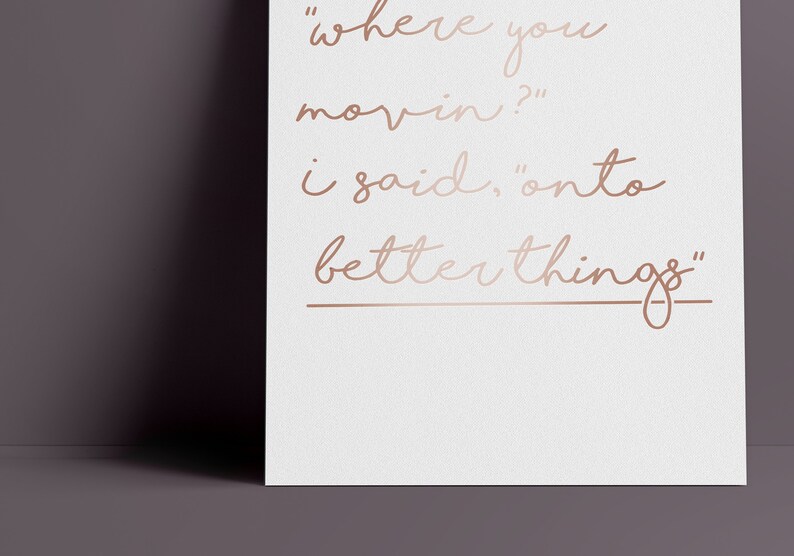 "where you
movin?"
i said, "onto
better things"